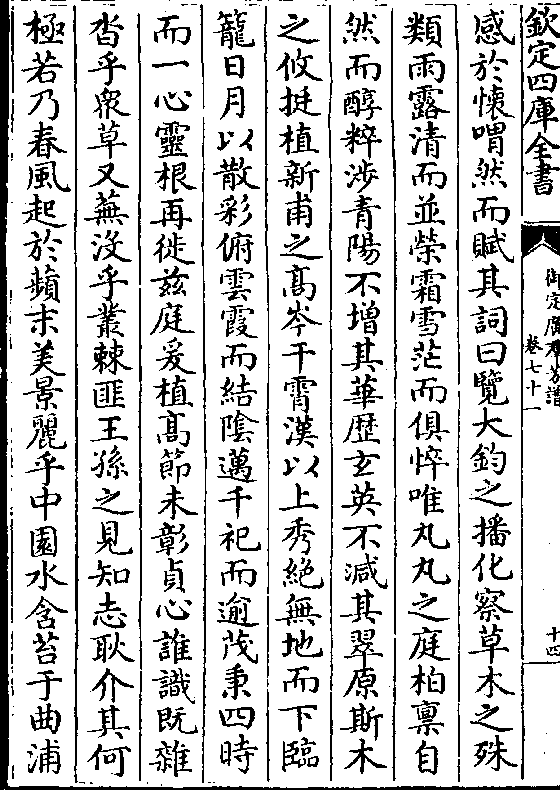 欽定四庫全書
御定廣羣芳譜
卷七十一
十四
感於懷喟然而賦其詞曰覽大鈞之播化察草木之殊
類雨露清而並榮霜雪茫而俱悴唯丸丸之庭柏禀自
然而醇粹涉青陽不增其華歷玄英不減其翠原斯木
之攸挺植新甫之高岑干霄漢以上秀絶無地而下臨
籠日月以散彩俯雲霞而結隂邁千祀而逾茂秉四時
而一心靈根再徙兹庭爰植高節未彰貞心誰識既雜
沓乎衆草又蕪没乎叢棘匪王孫之見知志耿介其何
極若乃春風起於蘋末美景麗乎中園水含苔于曲浦